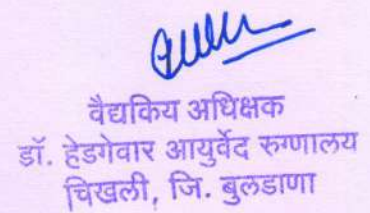 वैद्यकिय अधिक्षक
डॉ. हेडगेवार आयुर्वेद रुग्णालय
चिखली, जि. बुलडाणा